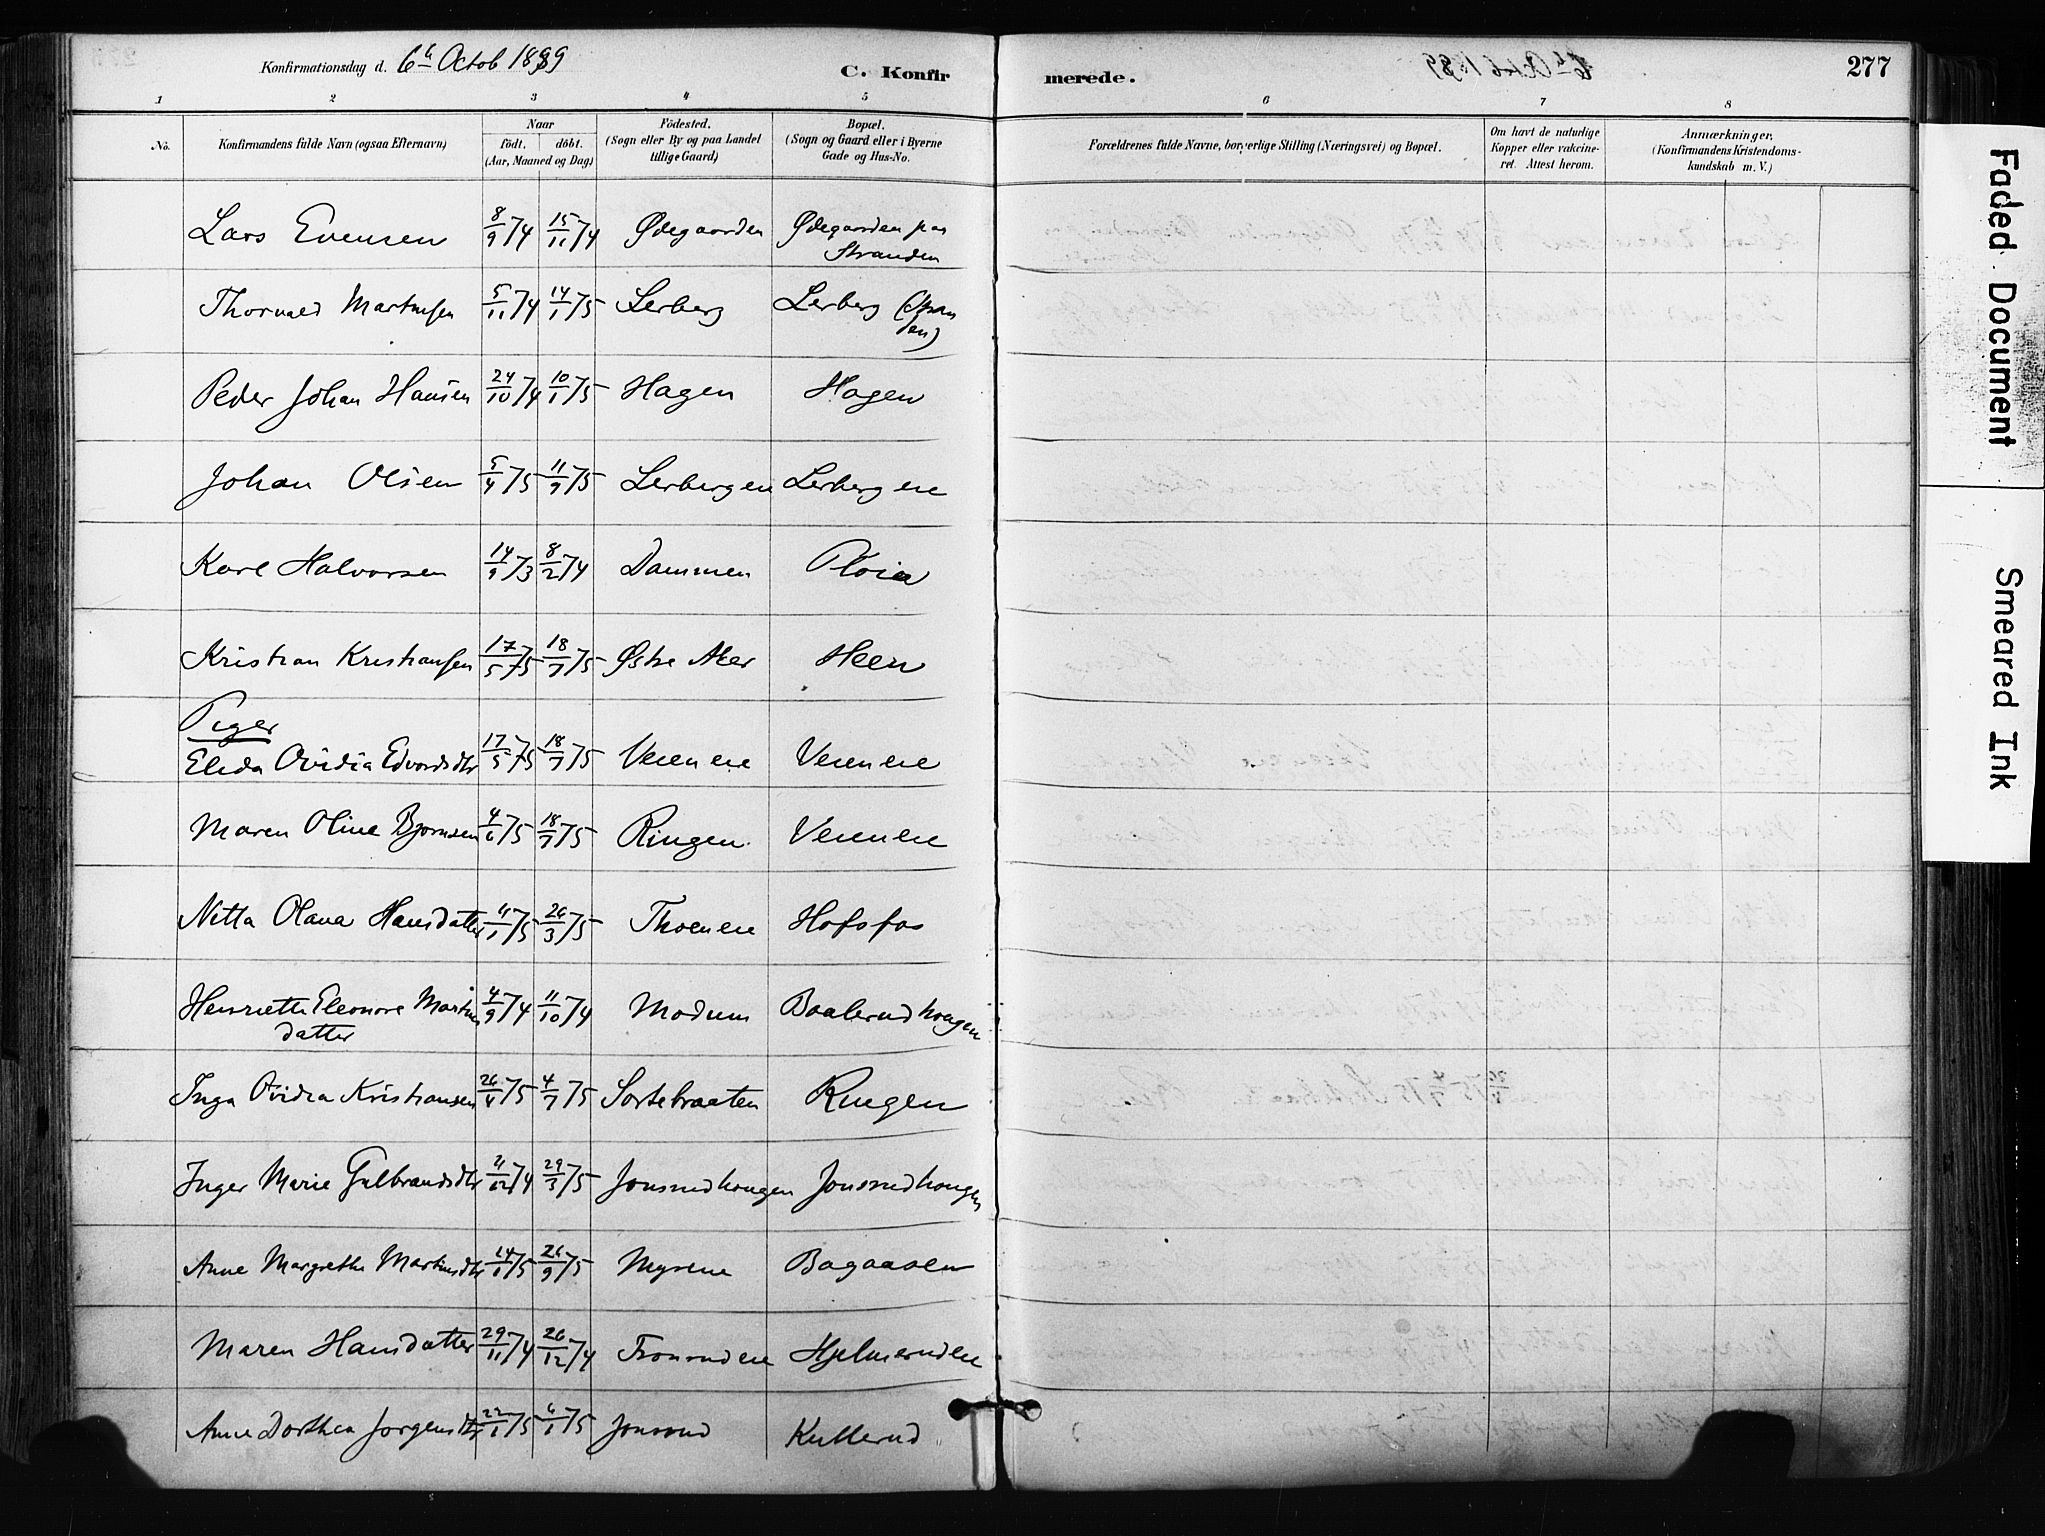 Konfirmationsdag d. 6te Octob 1889
C. Konfirmerede.
277
1 2 3 4 5 6 7 8
No.
Konfirmandens fulde Navn (ogsaa Efternavn)
Naar
födt. döbt.
(Aar, Maaned og Dag)
Födested.
(Sogn eller By og paa Landet
tillige Gaard)
Bopæl.
(Sogn og Gaard eller i Byerne
Gade og Hus-No.
Forældrenes fulde Navne, borgerlige Stilling (Næringsvei) og Bopæl.
Om havt de naturlige
Kopper eller vakcine-
ret. Attest herom.
Anmærkninger.
(Konfirmandens Kristendoms-
kundskab m. V.)
Lars Evensen 8/9 74 15/11 74 Ødegaarden Ødegaarden paa
Stranden
Thorvald Martinsen 5/11 74 14/1 75 Lerberg Lerberg (Stran
den)
Peder Johan Hansen 24/10 74 10/1 75 Hagen Hagen
Johan Olsen 5/4 75 11/9 75 Lerbergene Lerbergene
Karl Halvorsen 14/9 73 8/2 74 Dammen Ploia
Kristian Kristiansen 17/5 75 18/7 75 Østre Aker Heen
Piger
Elida Ovidia Edvardsdtr 17/5 75 18/7 75 Veienene Veienene
Maren Oline Bjørnsen 4/6 75 18/7 75 Ringen Veienene
Nitta Olava Hansdatter 11/1 75 26/3 75 Thoenene Hofsfos
Henriette Eleonore Martins
datter 4/9 74 11/10 74 Modum Baalerudhougen
Inga Ovidia Kristiansen 26/4 75 4/7 75 Sortebraaten Ringen
Inger Marie Gulbrandsdtr 21/12 74 29/3 75 Jonsrudhougen Jonsrudhougen
Anne Margrethe Martinsdtr 14/1 75 26/9 75 Myrene Bagaasen
Maren Hansdatter 29/11 74 26/12 74 Tronrudene Hjelmerudene
Anne Dorthea Jørgensdtr 22/1 75 6/1 75 Jonsrud Kullerud
Faded Document
Smeared Ink